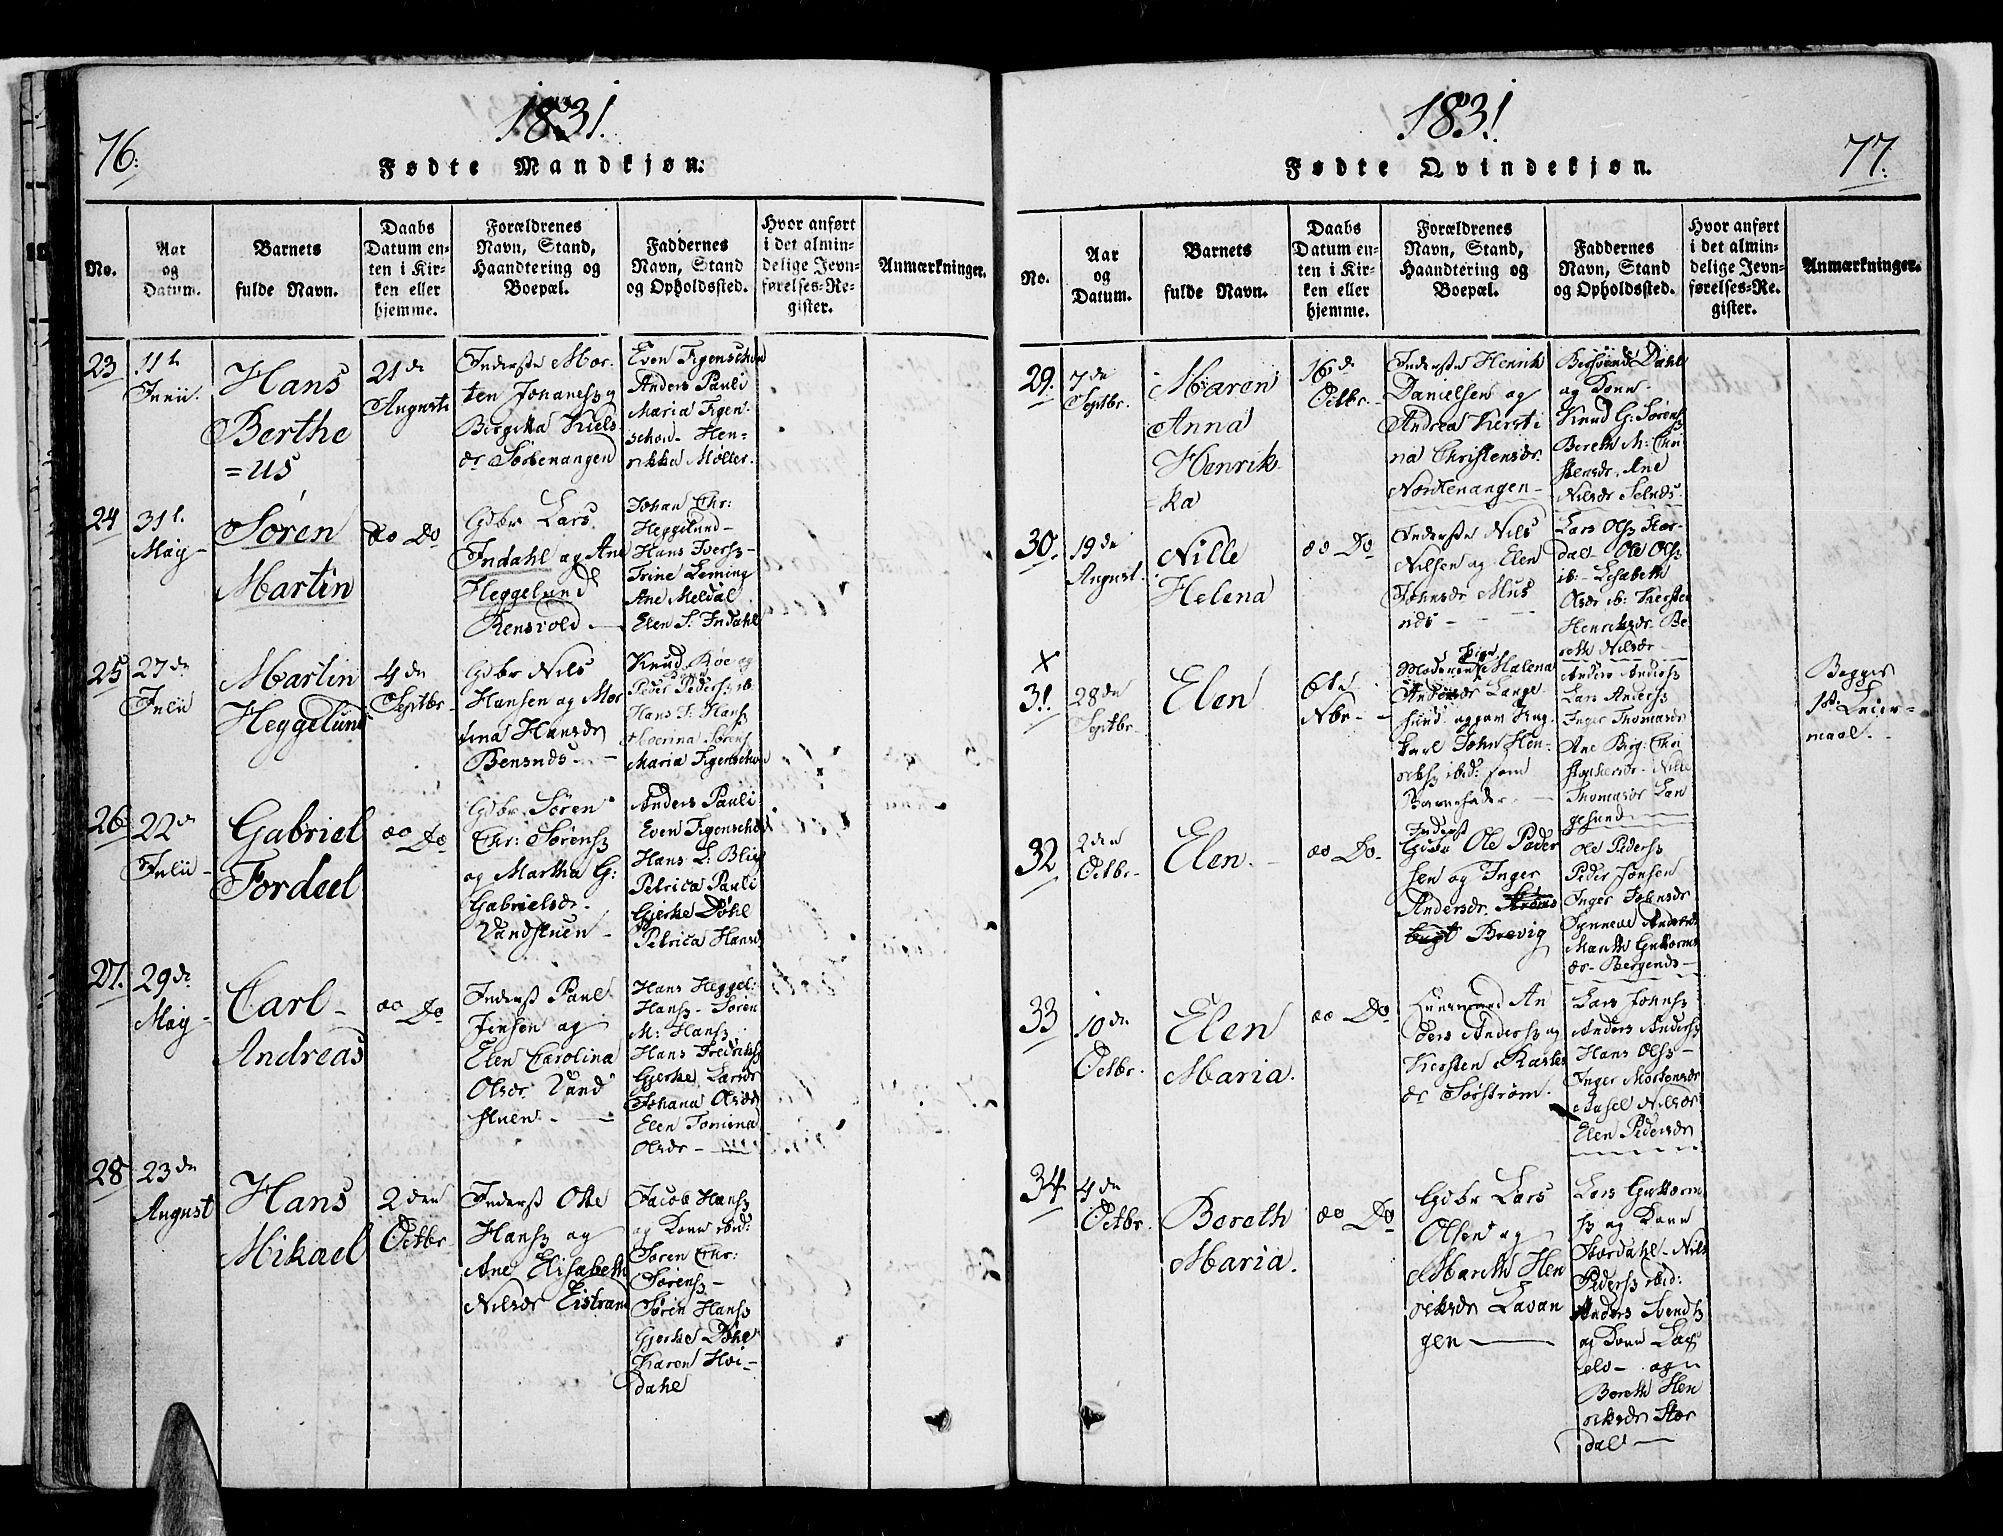 76.
1831.
Fødte Mandkjøn.
No.
Aar
og
Datum.
Barnets
fulde Navn.
Daabs
Datum en-
ten i Kir-
ken eller
hjemme.
Forældrenes
Navn, Stand,
Haandtering og
Boepæl.
Faddernes
Navn, Stand
og Opholdssted.
Hvor anført
i det almin-
delige Jevn-
førelses-Re-
gister.
Anmærkninger.
23
11te
Junii.
Hans
Berthe
=us
21de
Augusti
Inderste Mor-
ten Johanes
Birgitta Niels
dr Sørbenangen
Even Figenschou
Anders Pauli
Maria Figen-
schou- Hen-
rikka Møller.
24
31te
May-
Soren
Martin
do Do
Gdbr Lars
Indahl og Ane
Heggelund
Rensvold.
Johan Chr:
Heggelund-
Hans Ivers
Trine Leming
Ane Meldal
Elen S. Indahl
25
27de
Julii
Martin
Heggelund
4de
Septbr-
Gdbr Nils
Hansen og Mor
tina Hansdr
Bensnes.
Knud Røe og
Peder Peders ib
Hans J: Hans
Hverina Sørens
Maria Figenschou
26
22de
Julii-
Gabriel
Fordeel
do Do
Gdbr Søren
Chr: Sørens
og Martha G:
Gabrielsdr.
Vandstuen-
Anders Pauli
Even Figenschou
Hans L: Blix
Petrica Pauli
Gjerke Døhl
Petrica Hansd
27.
29de
May-
Carl
Andreas
do Do
Inderst Paul
Jensen og
Elen Carolina
Olsdr Vand
stuen.
Hans Heggel:
Hans- Søren
M: Hans
Hans Fredriks
Gjerke Larsdr
Johana Olsdr
Elen Tomina
Olsdr-
28
23de
August
Hans
Mikael
2den
Octbr
Inderst Otte
Hans og
Ane Elisabeth
Nilsdr Eistrand
Jacob Hans
og Kone ibid:
Søren Chr:
Sørens-
Søren Hans
Gjerke Døhl
Karen Hvi-
dahl
1831
77.
Fødte Qvindekjøn.
No.
Aar
og
Datum.
Barnets
fulde Navn.
Daabs
Datum en-
ten i Kir-
ken eller
hjemme.
Forældrenes
Navn, Stand,
Haandtering og
Boepæl.
Faddernes
Navn, Stand
og Opholdssted.
Hvor anført
i det almin-
delige Jevn-
førelses-Re-
gister.
Anmærkninger.
29.
7de
Septbr.
Maren
Anna
Henrik
ka
16de
Octbr.
Inderste Henrik
Danielsen og
Andrea Kersti
na Christensdr.
Nordenangen-
Dahl
og Kone
Knud G: Sørens
Bereth M: Chri
stensdr. Ane
Nilsdr Selnes.
30.
19de
August.
Nille
Helena
do Do
Inderste Nils
Nilsen og Elen
Johnsdr Mus
nes
Lars Ols Stor-
dal- Ole Ols
ib:- Lisabeth
Olsdr ib: Kersten
Henriksdr- Be
reth Nilsdr-
x
31.
28de
Septbr-
Elen
6te
Nbr-
Pige
Moderen Malena
Andersdr Lange
sund og Ung-
karl John Hen-
riks ibid: som
Barnefader.
Anders Anders
Lars Anders
Inger Thomasdr
Ane Birg: Chri
stophersdr- Nille
Thomasdr Lan
gesund
Begges
1ste Leier-
maal.
32
2den
Octbr-
Elen.
do Do-
Inderst
Ole Peder
sen og Inger
Andersdr
Brevig
Ole Peders
Peder Jonsen
Inger Johnsdr
Synneve Andersd
Mareth Guttorms
dr- Bergenes-
33
10de
Octbr.
Elen
Maria.
do Do
An
ders Anders og
Kersten
dr Sørstrøm.
Lars Johns
Anders Anders
Hans Ols-
Inger Mortensdr
Nilsdr
Elen Pedersdr
34
4de
Octbr.
Bereth
Maria.
do Do
Gdbr Lars
Olsen og
Mareth Hen
riksdr Lavan
gen
Lars Guttorm
s og Kone
Stordahl- Nils
Peders ibid:
Anders Svends
og Kone Lax
elv- og
Bereth Hen
riksdr Stor
dal